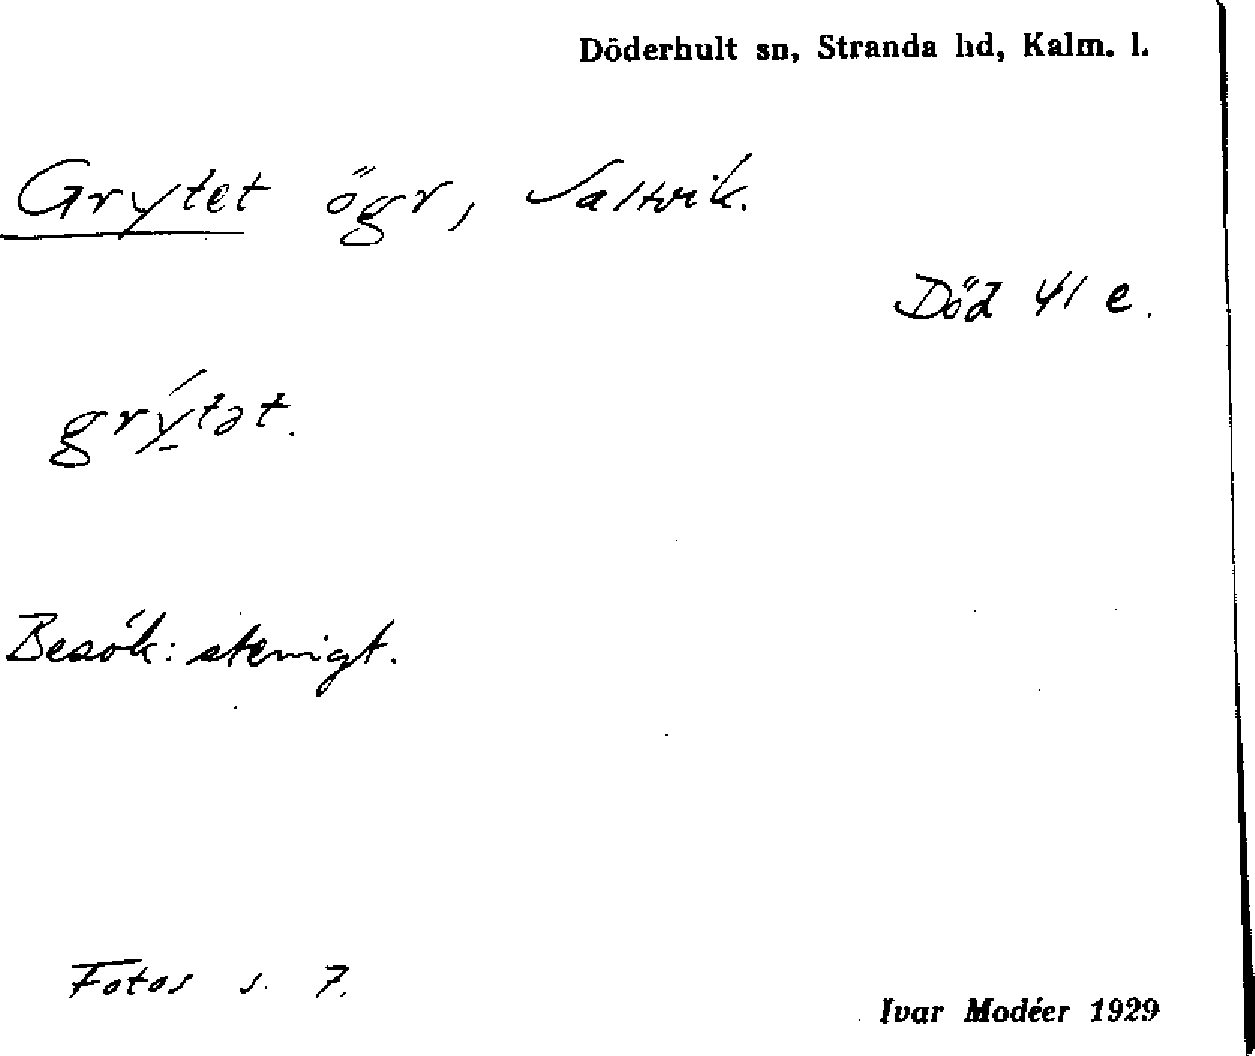 Döderhult sn, Stranda hd, Kalm. l.
Grytet ögr, Saltvik.
Död 41 e.
grýtət.
Besök: stenigt.
Fotos s. 7.
Ivar Modéer 1929